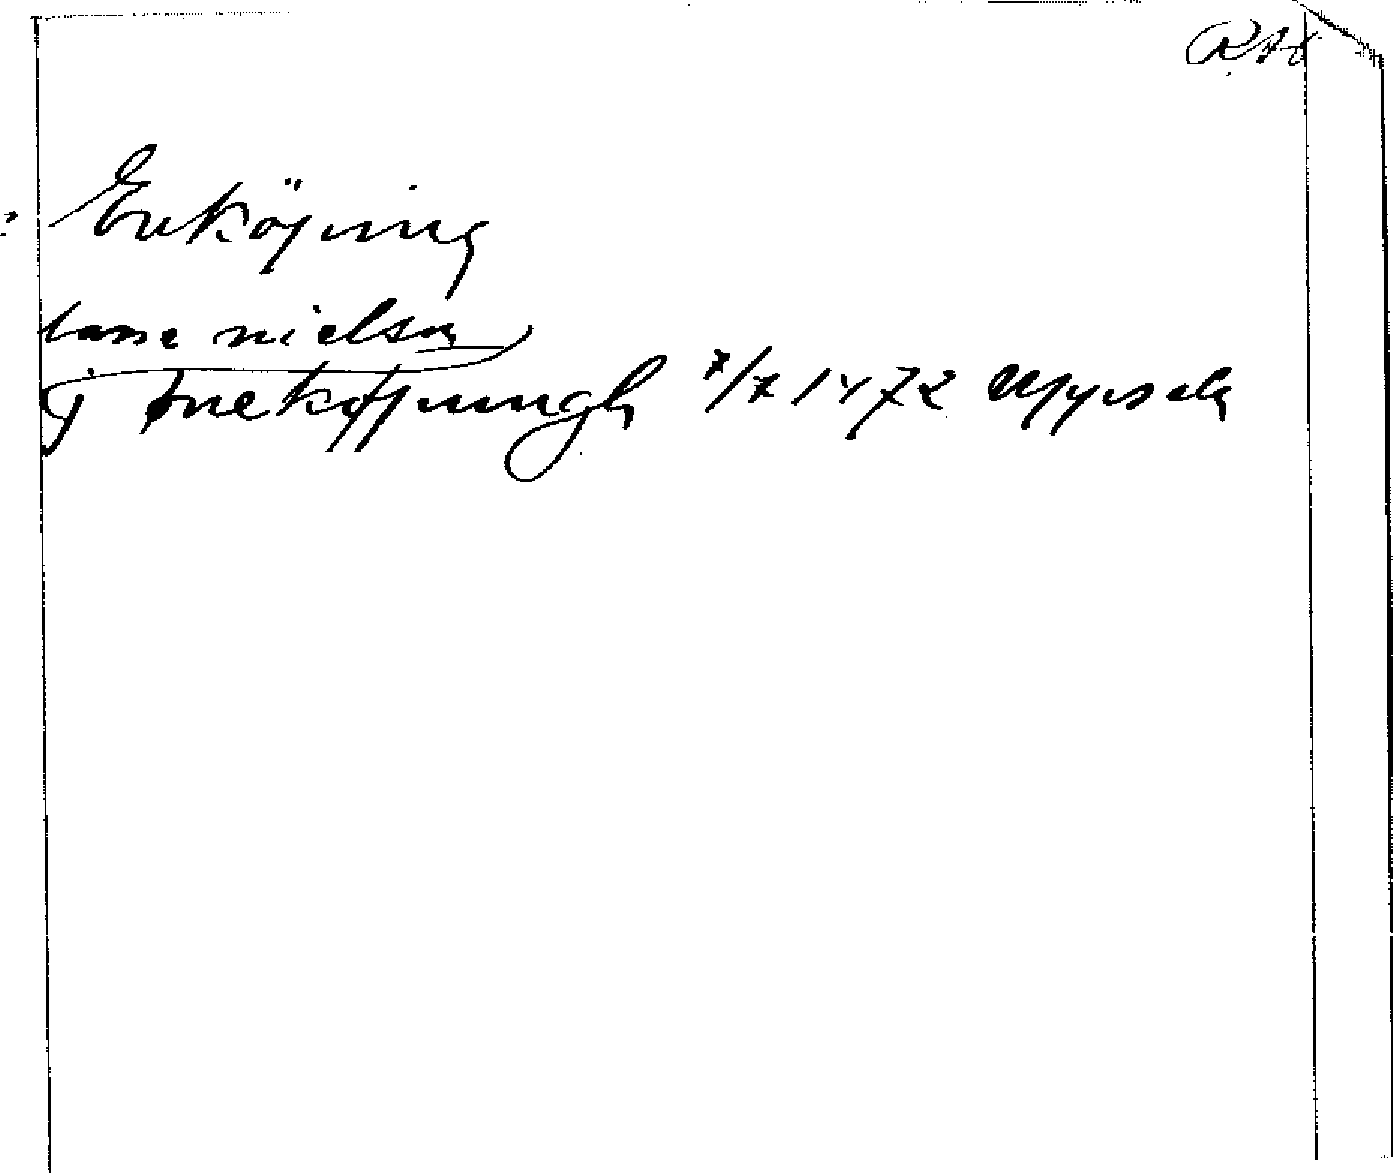 RAO
Enköping
lasse nielson
j eneköpungh 7/7 1472 Uppsala